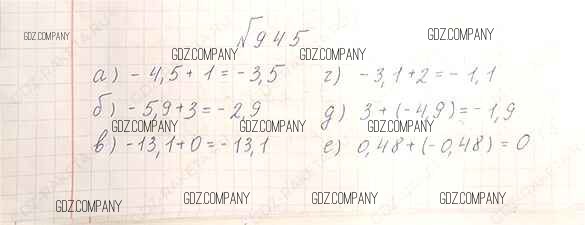 √945
а) - 4,5 + 1 = - 3,5
б) - 5,9 + 3 = - 2,9
в) - 13,1 + 0 = - 13,1
г) - 3,1 + 2 = - 1,1
д) 3 + (- 4,9) = - 1,9
е) 0,48 + (- 0,48) = 0
GDZ.COMPANY
GDZ.COMPANY
GDZ.COMPANY
GDZ.COMPANY
GDZ.COMPANY
GDZ.COMPANY
GDZ.COMPANY
GDZ.COMPANY
GDZ.COMPANY
GDZ.COMPANY
GDZ.COMPANY
GDZ.COMPANY